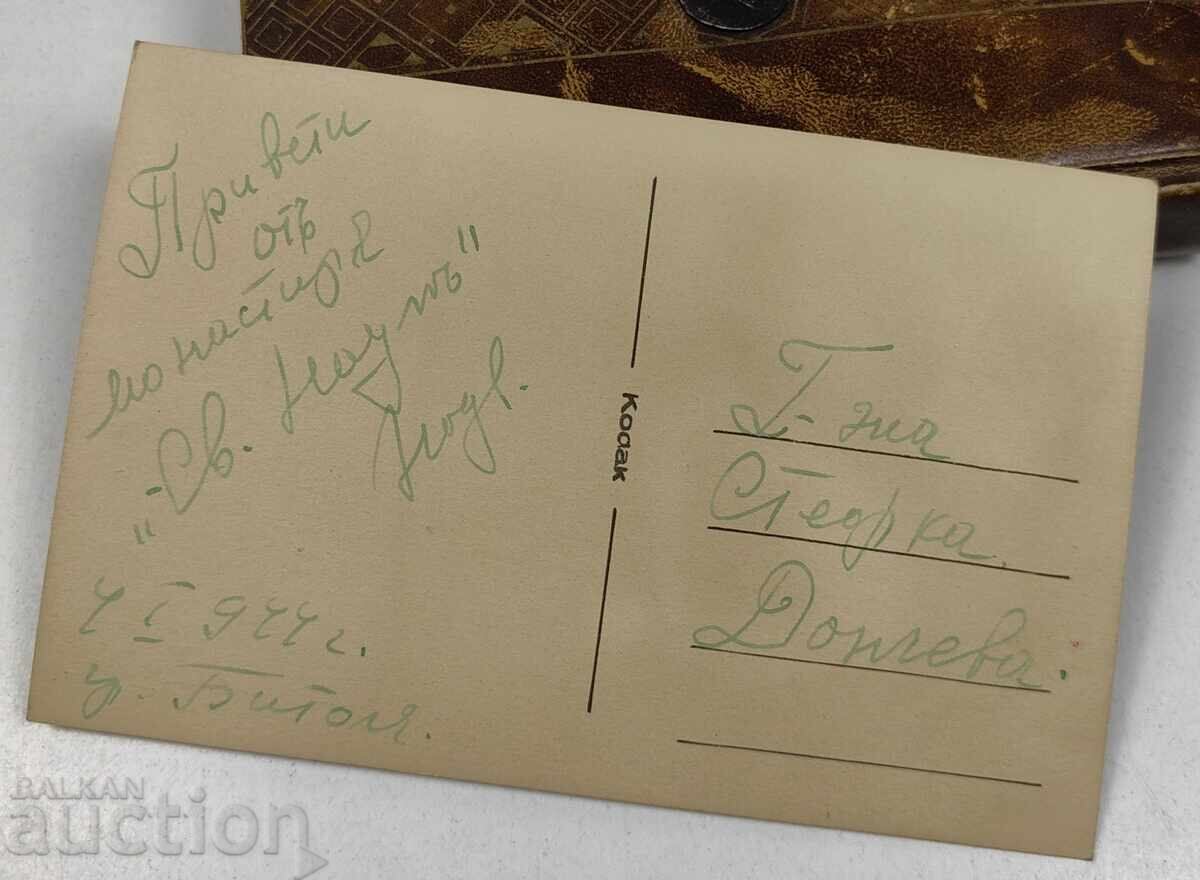 Привети
отъ
монастиря
"Св. Наумъ"
4 I 944 г.
гр. Битоля.
Kodak
Г-жа
Стефка
Дончева.
BALKAN
auction